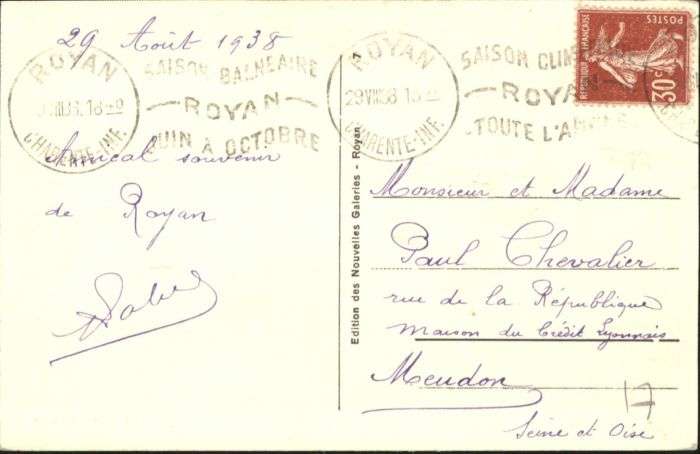 29 Août 1938
ROYAN
CHARENTE-INF.
SAISON BALNEAIRE
ROYAN
JUIN À OCTOBRE
ROYAN
29 VIII 38
CHARENTE-INF.
SAISON CLIM
ROYAN
TOUTE L'AN
POSTES
REPUBLIQUE FRANÇAISE
30c
Amical souvenir
de Royan
Edition des Nouvelles Galeries - Royan
Monsieur et Madame
Paul Chevalier
rue de la République
maison du Crédit Lyonnais
Meudon
17
Seine et Oise